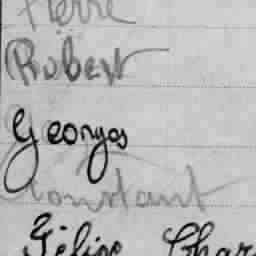 Pierre
Robert
Georges
Constant
Félix Char